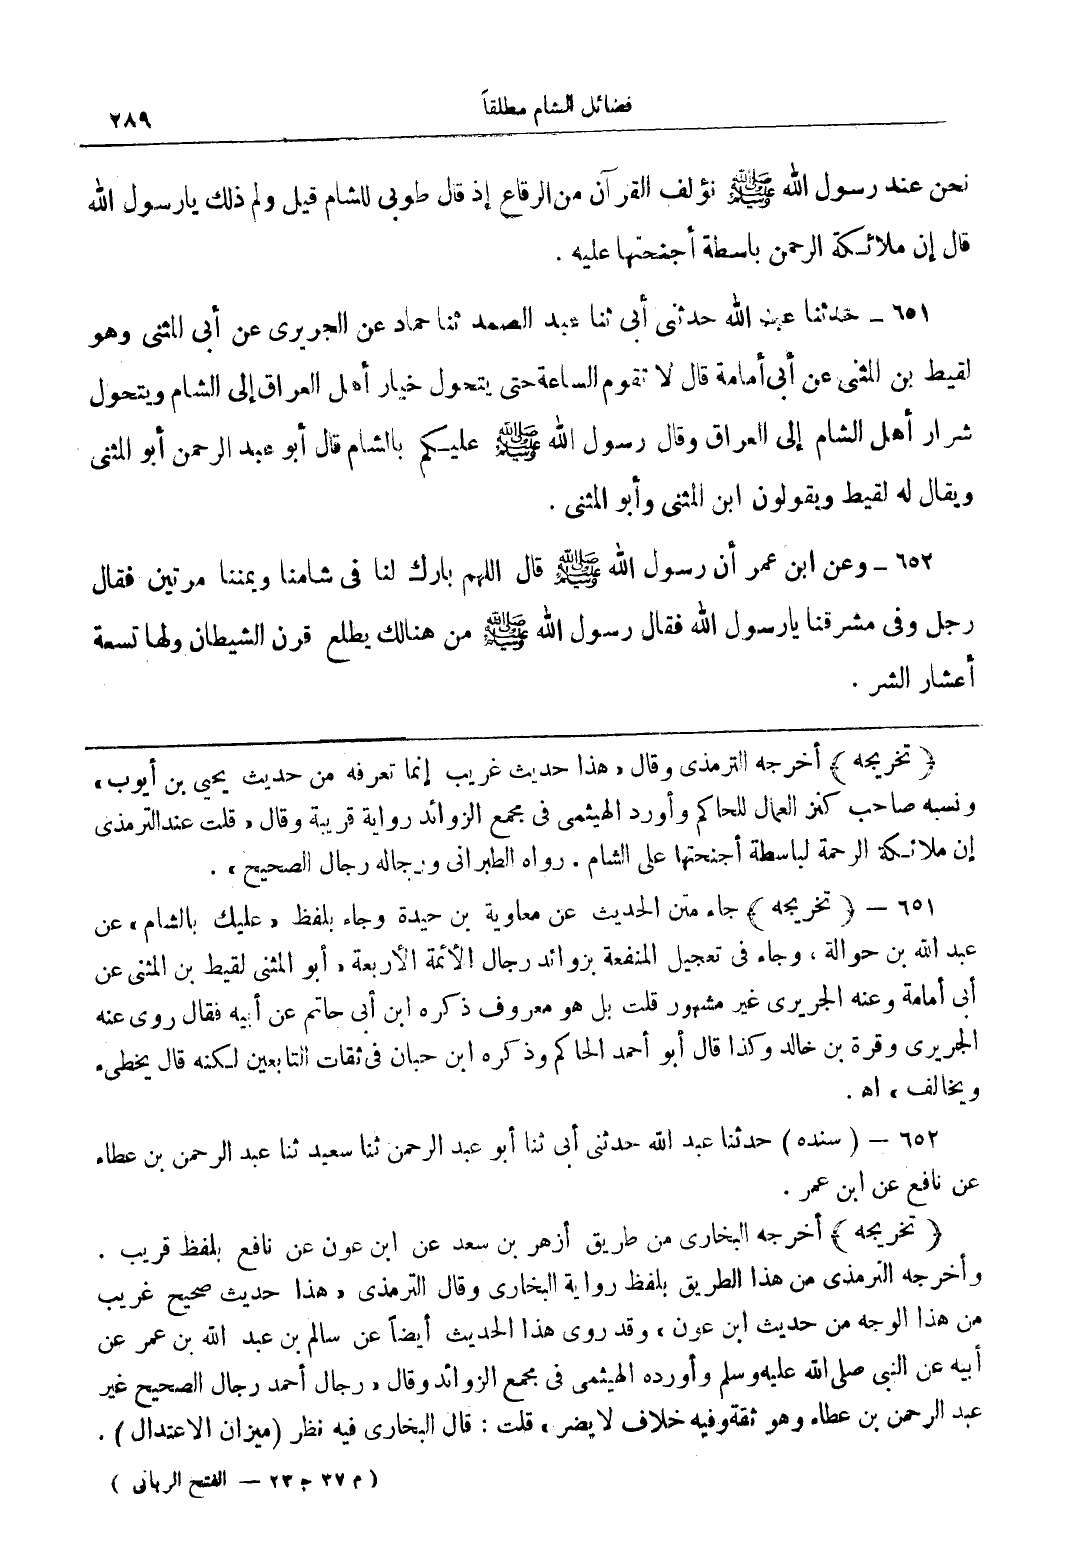 فضائل الشام مطلقاً
٢٨٩
نحن عند رسول الله ﷺ نؤلف القرآن من الرقاع إذ قال طوبى للشام قيل ولم ذلك يارسول الله
قال إن ملائكة الرحمن باسطة أجنحتها عليه .
٦٥١ ـ حدثنا عبد الله حدثنى أبى ثنا عبد الصمد ثنا حماد عن الجريرى عن أبى المثنى وهو
لقيط بن المثنى عن أبى أمامة قال لا تقوم الساعة حتى يتحول خيار أهل العراق إلى الشام ويتحول
شرار أهل الشام إلى العراق وقال رسول الله ﷺ عليكم بالشام قال أبو عبد الرحمن أبو المثنى
ويقال له لقيط ويقولون ابن المثنى وأبو المثنى .
٦٥٢ ـ وعن ابن عمر أن رسول الله ﷺ قال اللهم بارك لنا فى شامنا ويمننا مرتين فقال
رجل وفى مشرقنا يارسول الله فقال رسول الله ﷺ من هنالك يطلع قرن الشيطان ولها تسعة
أعشار الشر .
﴿ تخريجه ﴾ أخرجه الترمذى وقال « هذا حديث غريب إنما تعرفه من حديث يحيى بن أيوب »
ونسبه صاحب كنز العمال للحاكم وأورد الهيثمى فى مجمع الزوائد رواية قريبة وقال « قلت عندالترمذى
إن ملائكة الرحمة لباسطة أجنحتها على الشام . رواه الطبرانى ورجاله رجال الصحيح » .
٦٥١ — ﴿ تخريجه ﴾ جاء متن الحديث عن معاوية بن حيدة وجاء بلفظ « عليك بالشام » عن
عبد الله بن حوالة ، وجاء فى تعجيل المنفعة بزوائد رجال الأئمة الأربعة « أبو المثنى لقيط بن المثنى عن
أبى أمامة وعنه الجريرى غير مشهور قلت بل هو معروف ذكره ابن أبى حاتم عن أبيه فقال روى عنه
الجريرى وقرة بن خالد وكذا قال أبو أحمد الحاكم وذكره ابن حبان فى ثقات التابعين لكنه قال يخطىء
ويخالف » اه .
٦٥٢ — ( سنده ) حدثنا عبد الله حدثنى أبى ثنا أبو عبد الرحمن ثنا سعيد ثنا عبد الرحمن بن عطاء
عن نافع عن ابن عمر .
﴿ تخريجه ﴾ أخرجه البخارى من طريق أزهر بن سعد عن ابن عون عن نافع بلفظ قريب .
وأخرجه الترمذى من هذا الطريق بلفظ رواية البخارى وقال الترمذى « هذا حديث صحيح غريب
من هذا الوجه من حديث ابن عون » وقد روى هذا الحديث أيضاً عن سالم بن عبد الله بن عمر عن
أبيه عن النبى صلى الله عليه وسلم وأورده الهيثمى فى مجمع الزوائد وقال « رجال أحمد رجال الصحيح غير
عبد الرحمن بن عطاء وهو ثقة وفيه خلاف لا يضر » قلت : قال البخارى فيه نظر (ميزان الاعتدال ) .
( م ٣٧ ج ٢٣ — الفتح الربانى )